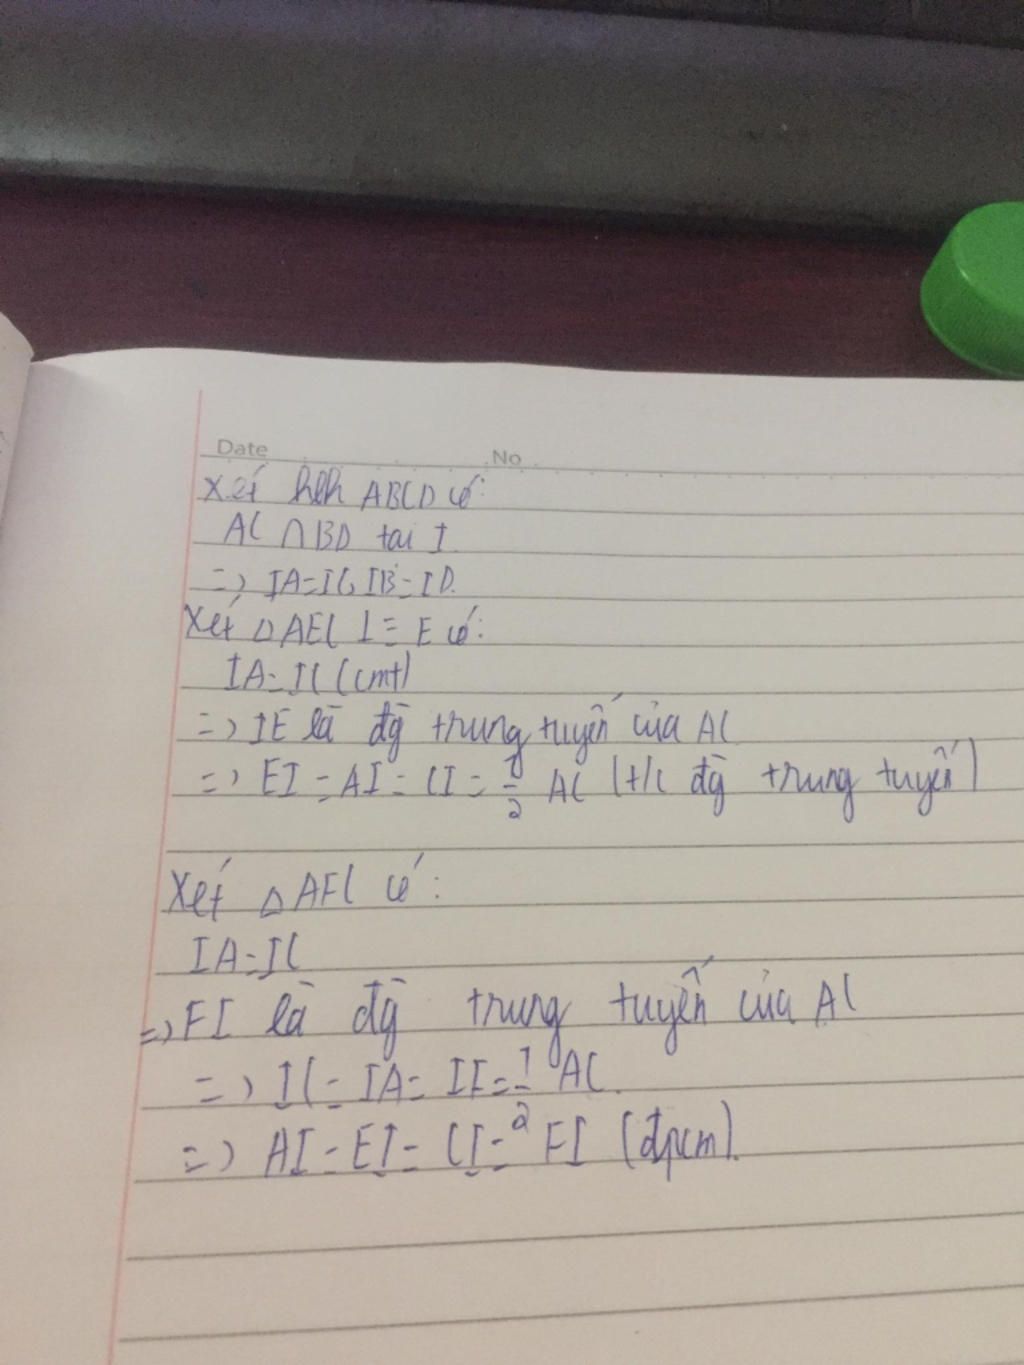 Date No
Xét hbh ABCD có:
AC ∩ BD tại I.
=> IA=IC, IB=ID.
Xét Δ AEC ⊥ = E có:
IA=IC (cmt)
=> IE là đg trung tuyến của AC
=> EI = AI = CI = 1/2 AC (t/c đg trung tuyến)
Xét Δ AFC có:
IA=IC
=> FI là đg trung tuyến của AC
=> IC = IA = IF = 1/2 AC.
=> AI = EI = CI = FI (đpcm).